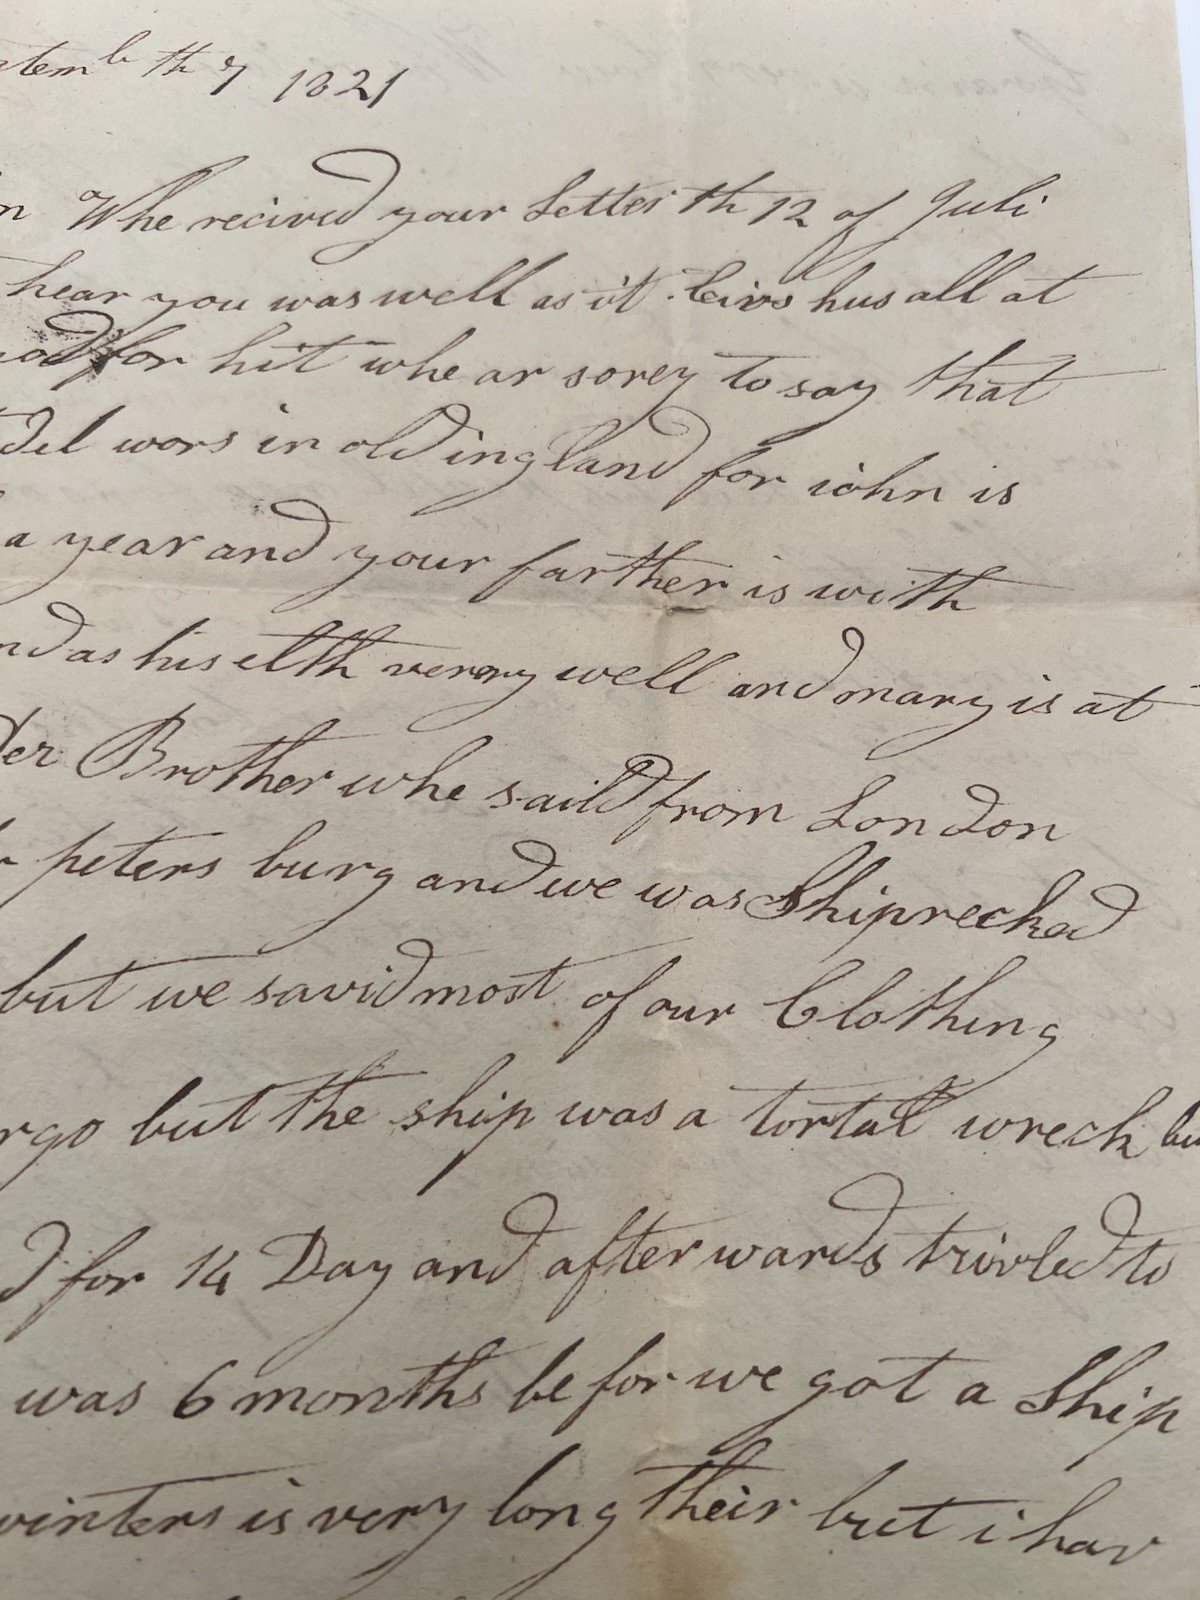 th 7 1821
Whe recived your Letter th 12 of Juli
hear you was well as it Leivs hus all at
for hit whe ar sorey to say that
wors in old ingland for iohn is
a year and your farther is with
as his elth verey well and mary is at
Brother whe saild from London
peters burg and we was Shiprecked
but we savid most of our Clothing
but the ship was a tortal wreck
for 14 Day and after wards trivled to
was 6 months be for we got a Ship
winters is very long their but i hav